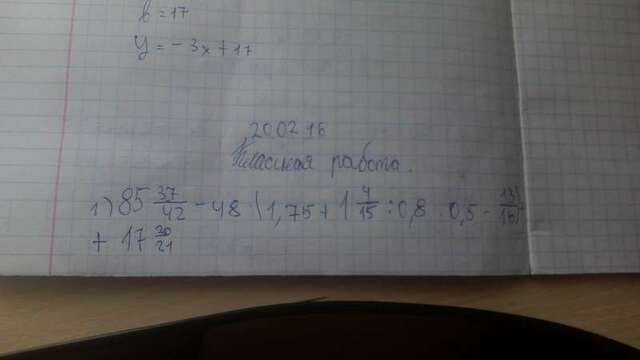 b = 17
y = -3x + 17
20.02.16
Классная работа.
1) 85 37/42 - 48 (1,75 + 1 4/15 : 0,8 · 0,5 - 13/16)
+ 17 20/21